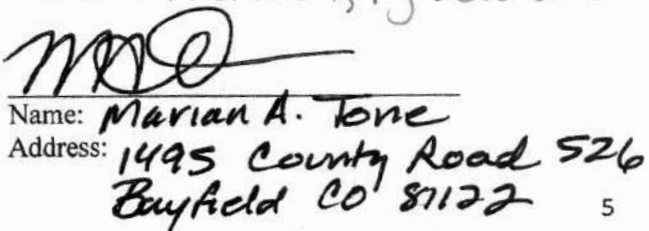 Name: Marian A. Tone
Address: 1495 County Road 526
Bayfield CO 81122
5